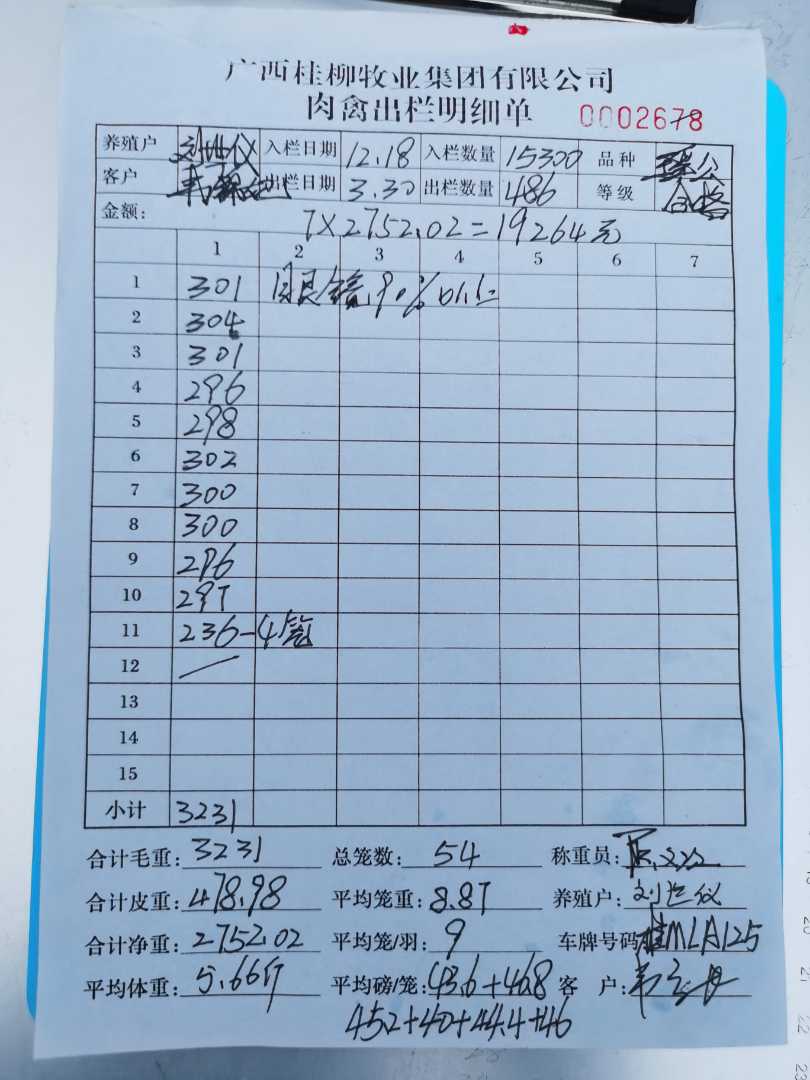 广西桂柳牧业集团有限公司
肉禽出栏明细单 0002678
养殖户 刘世仪 入栏日期 12.18 入栏数量 15300 品种
客户 出栏日期 3.30 出栏数量 486 等级 合格
金额: 7×2752.02=19264元
1 2 3 4 5 6 7
1 301
2 304
3 301
4 296
5 298
6 302
7 300
8 300
9 296
10 297
11 236-4笼
12
13
14
15
小计 3231
合计毛重: 3231 总笼数: 54 称重员:
合计皮重: 478.98 平均笼重: 8.87 养殖户: 刘世仪
合计净重: 2752.02 平均笼/羽: 9 车牌号码 桂MLA125
平均体重: 5.66斤 平均磅/笼: 43.6+46.8 客户:
45.2+40+44.4+46